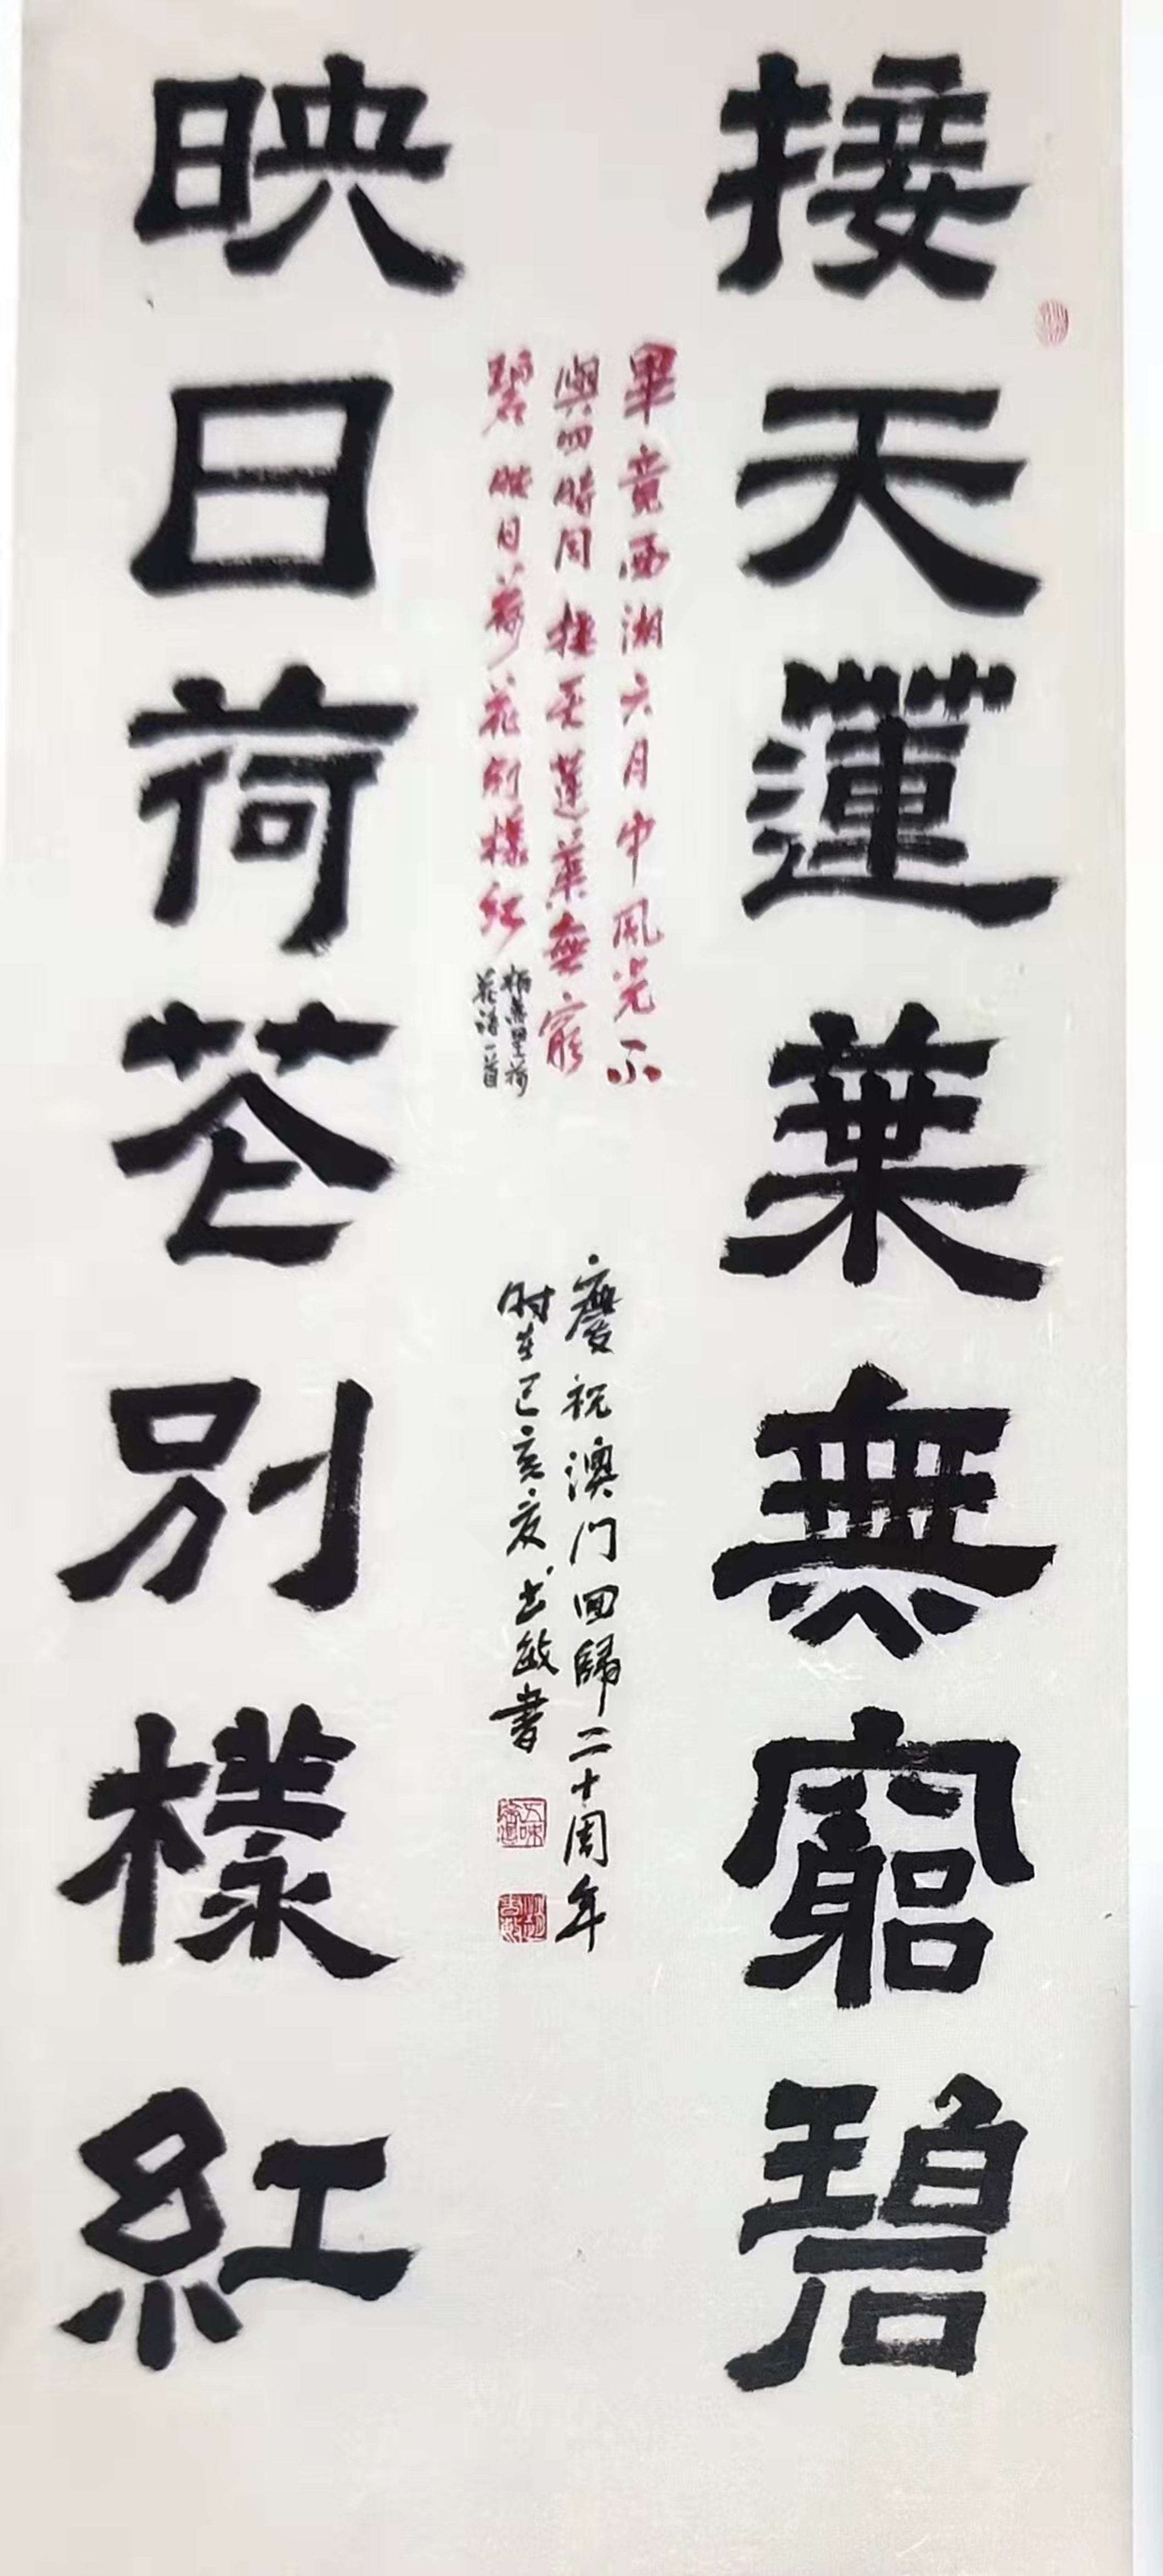 接天蓮葉無窮碧
畢竟西湖六月中風光不
與四時同接天蓮葉無窮
碧映日荷花別樣紅
荷
花詩一首
慶祝澳门回歸二十周年
时在己亥夏志敏書
映日荷花別樣紅